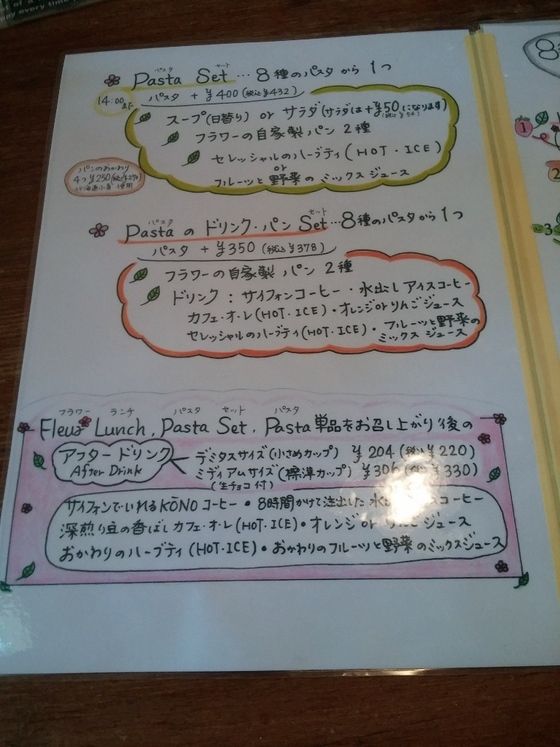 パスタ セット
Pasta Set… 8種のパスタから1つ
14:00まで
パスタ + ¥400 (税込¥432)
スープ(日替り) or サラダ (サラダは+¥50になります)
フラワーの自家製パン2種
セレッシャルのハーブティ(HOT・ICE)
or
フルーツと野菜のミックスジュース
パンのおかわり
4つ ¥250
使用
パスタ セット
Pastaのドリンク・パンSet…8種のパスタから1つ
パスタ + ¥350 (税込¥378)
フラワーの自家製パン2種
ドリンク:サイフォンコーヒー・水出しアイスコーヒー
カフェ・オ・レ(HOT・ICE)・オレンジorりんごジュース
セレッシャルのハーブティ(HOT・ICE)・フルーツと野菜の
ミックスジュース
フラワー ランチ パスタ セット パスタ
Fleur Lunch, Pasta Set, Pasta単品をお召し上がり後の
アフタードリンク
After Drink
デミタスサイズ(小さめカップ) ¥204 (税込¥220)
ミディアムサイズ(標準カップ) ¥306 (税込¥330)
(生チョコ付)
サイフォンでいれるKŌNOコーヒー・8時間かけて注出した水出しアイスコーヒー
深煎り豆の香ばしカフェ・オ・レ(HOT・ICE)・オレンジorりんごジュース
おかわりのハーブティ(HOT・ICE)・おかわりのフルーツと野菜のミックスジュース